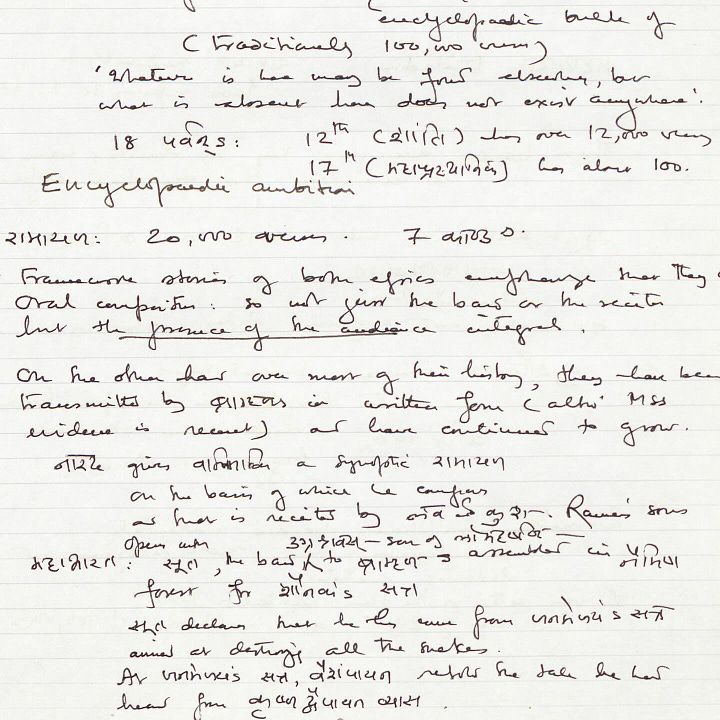 encyclopaedic bulk of
(traditionally 100,000 verses)
'Whatever is here may be found elsewhere, but
what is absent here does not exist anywhere'.
18 पर्वs: 12th (शांति) has over 12,000 verses
17th (महाप्रस्थानिक) has about 100.
Encyclopaedic ambition
रामायण: 20,000 verses. 7 काण्ड s.
Framework stories of both epics emphasize that they
Oral composition: so not just the bard or the reciter
but the presence of the audience integral.
On the other hand over most of their history, they have been
transmitted by ब्राह्मणs in written form (altho' MSS
evidence is recent) and have continued to grow.
नारद gives वाल्मिकि a synoptic रामायण
on the basis of which he composes
and that is recited by लव and कुश. Rama's sons
opens with उग्रश्रवस् – son of
महाभारत: सूत, the bard to ब्राह्मणs assembled in नैमिष
forest for शौनक's सत्र
सूत declares that he has come from जनमेजय's सत्र
aimed at destroying all the snakes.
At जनमेजय's सत्र, वैशंपायन retold the tale he had
heard from कृष्ण द्वैपायन व्यास.